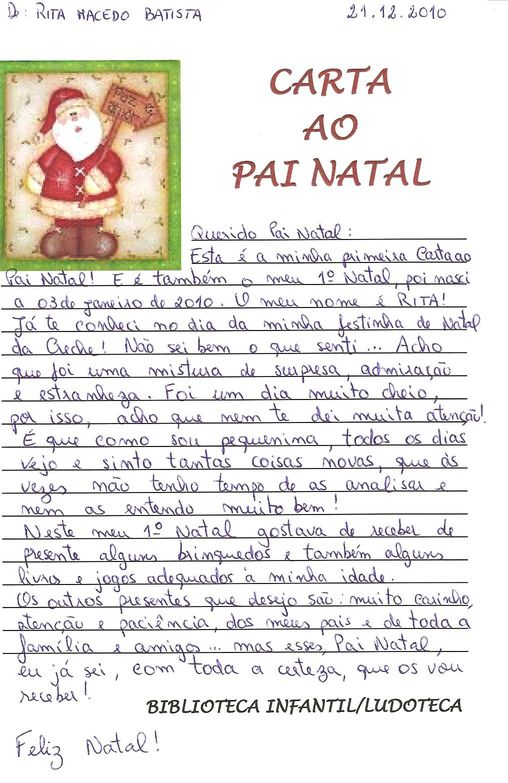 De: RITA MACEDO BATISTA
21.12.2010
Paz e
amor!
CARTA
AO
PAI NATAL
Querido Pai Natal:
Esta é a minha primeira Carta ao
Pai Natal! E é também o meu 1º Natal, poi nasci
a 03 de janeiro de 2010. O meu nome é RITA!
Já te conheci no dia da minha festinha de Natal
da Creche! Não sei bem o que senti... Acho
que foi uma mistura de surpresa, admiração
e estranheza. Foi um dia muito cheio,
por isso, acho que nem te dei muita atenção!
É que como sou pequenina, todos os dias
vejo e sinto tantas coisas novas, que às
vezes não tenho tempo de as analisar e
nem as entendo muito bem!
Neste meu 1º Natal gostava de receber de
presente alguns brinquedos e também alguns
livros e jogos adequados à minha idade.
Os outros presentes que desejo são: muito carinho,
atenção e paciência, dos meus pais e de toda a
família e amigos... mas esses, Pai Natal,
eu já sei, com toda a certeza, que os vou
receber!
BIBLIOTECA INFANTIL/LUDOTECA
Feliz Natal!